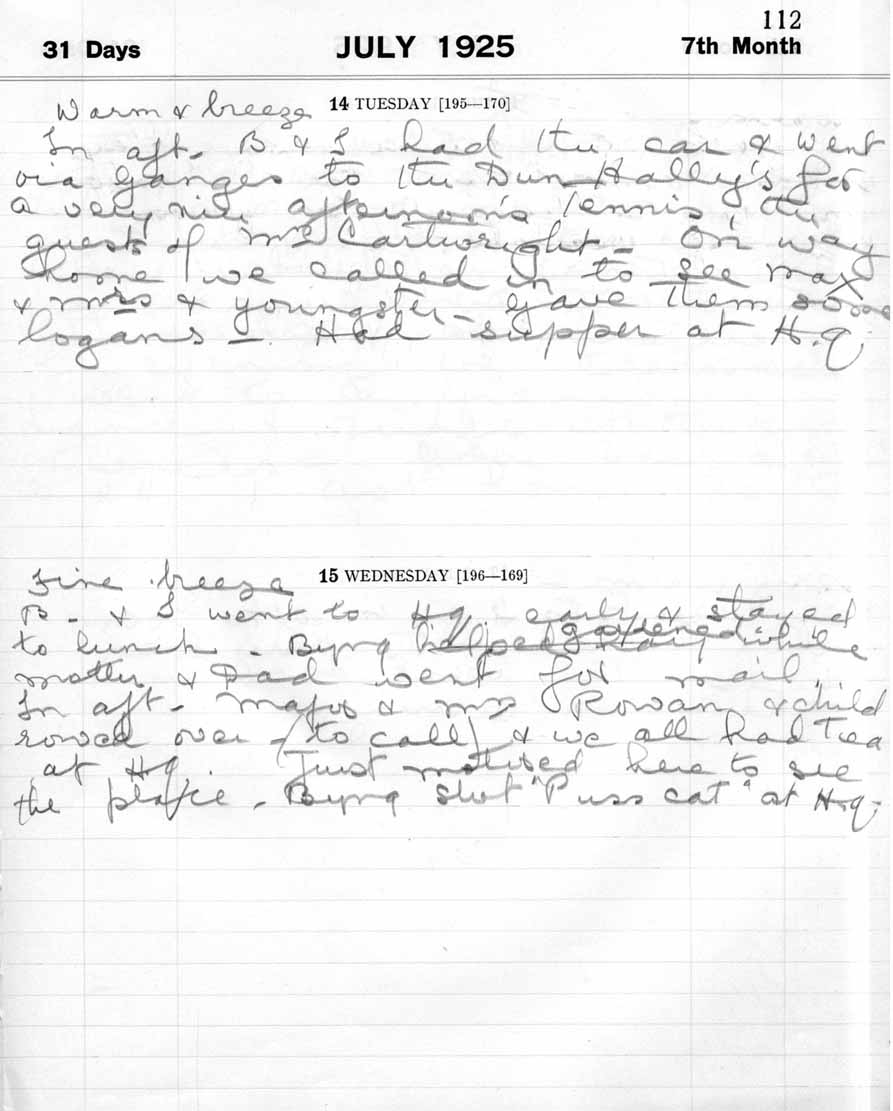 112
31 Days JULY 1925 7th Month
Warm & breeze 14 TUESDAY [195—170]
In aft. B & I had the car & went
via Ganges to the Dun-Halley's for
a very nice afternoon's tennis, the
guests of Mrs Cartwright - On way
home we called in to see Max
& Mrs & youngster - gave them some
logans -. Had supper at H.q.
Fine breeze 15 WEDNESDAY [196—169]
B. & I went to Hq. early & stayed
to lunch - Byng gardened while
mother & Dad went for mail.
In aft - Major & Mrs Rowan & child
rowed over - (to call) & we all had Tea
at Hq. (Just motored here to see
the place - Byng shot "Puss cat" at H.q.